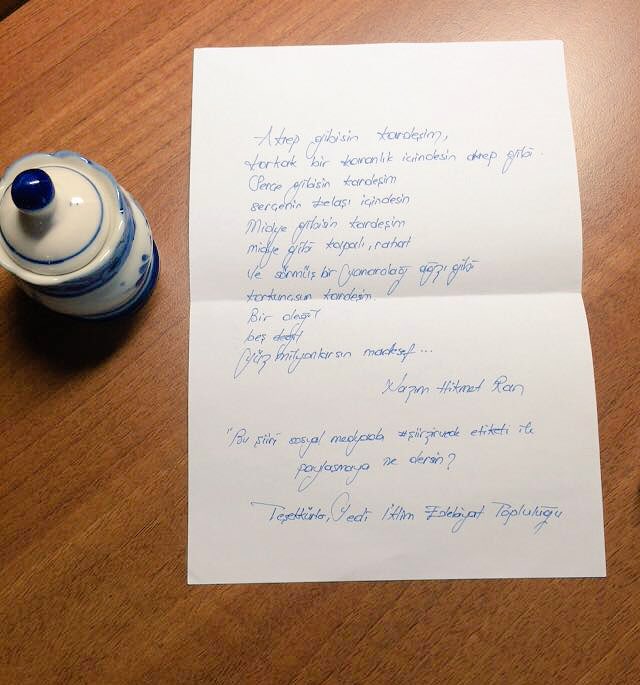 Akrep gibisin kardeşim,
korkak bir karanlık içindesin akrep gibi.
Serçe gibisin kardeşim
serçenin telaşı içindesin
Midye gibisin kardeşim
midye gibi kapalı, rahat
Ve sönmüş bir yanardağ ağzı gibi
korkunçsun kardeşim.
Bir değil
beş değil
yüz milyonlarsın maalesef...
Nazım Hikmet Ran
"Bu şiiri sosyal medyada #şiirzirvede etiketi ile
paylaşmaya ne dersin?
Teşekkürler, Yedi İklim Edebiyat Topluluğu